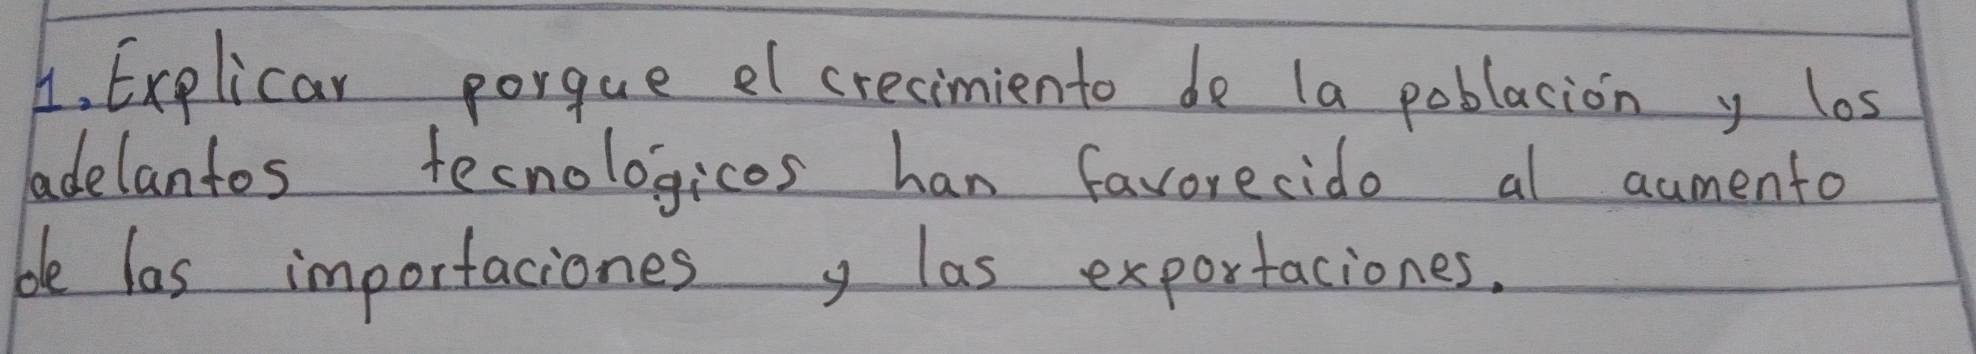 1. Explicar porque el crecimiento de la población y los
adelantos tecnológicos han favorecido al aumento
de las importaciones y las exportaciones.